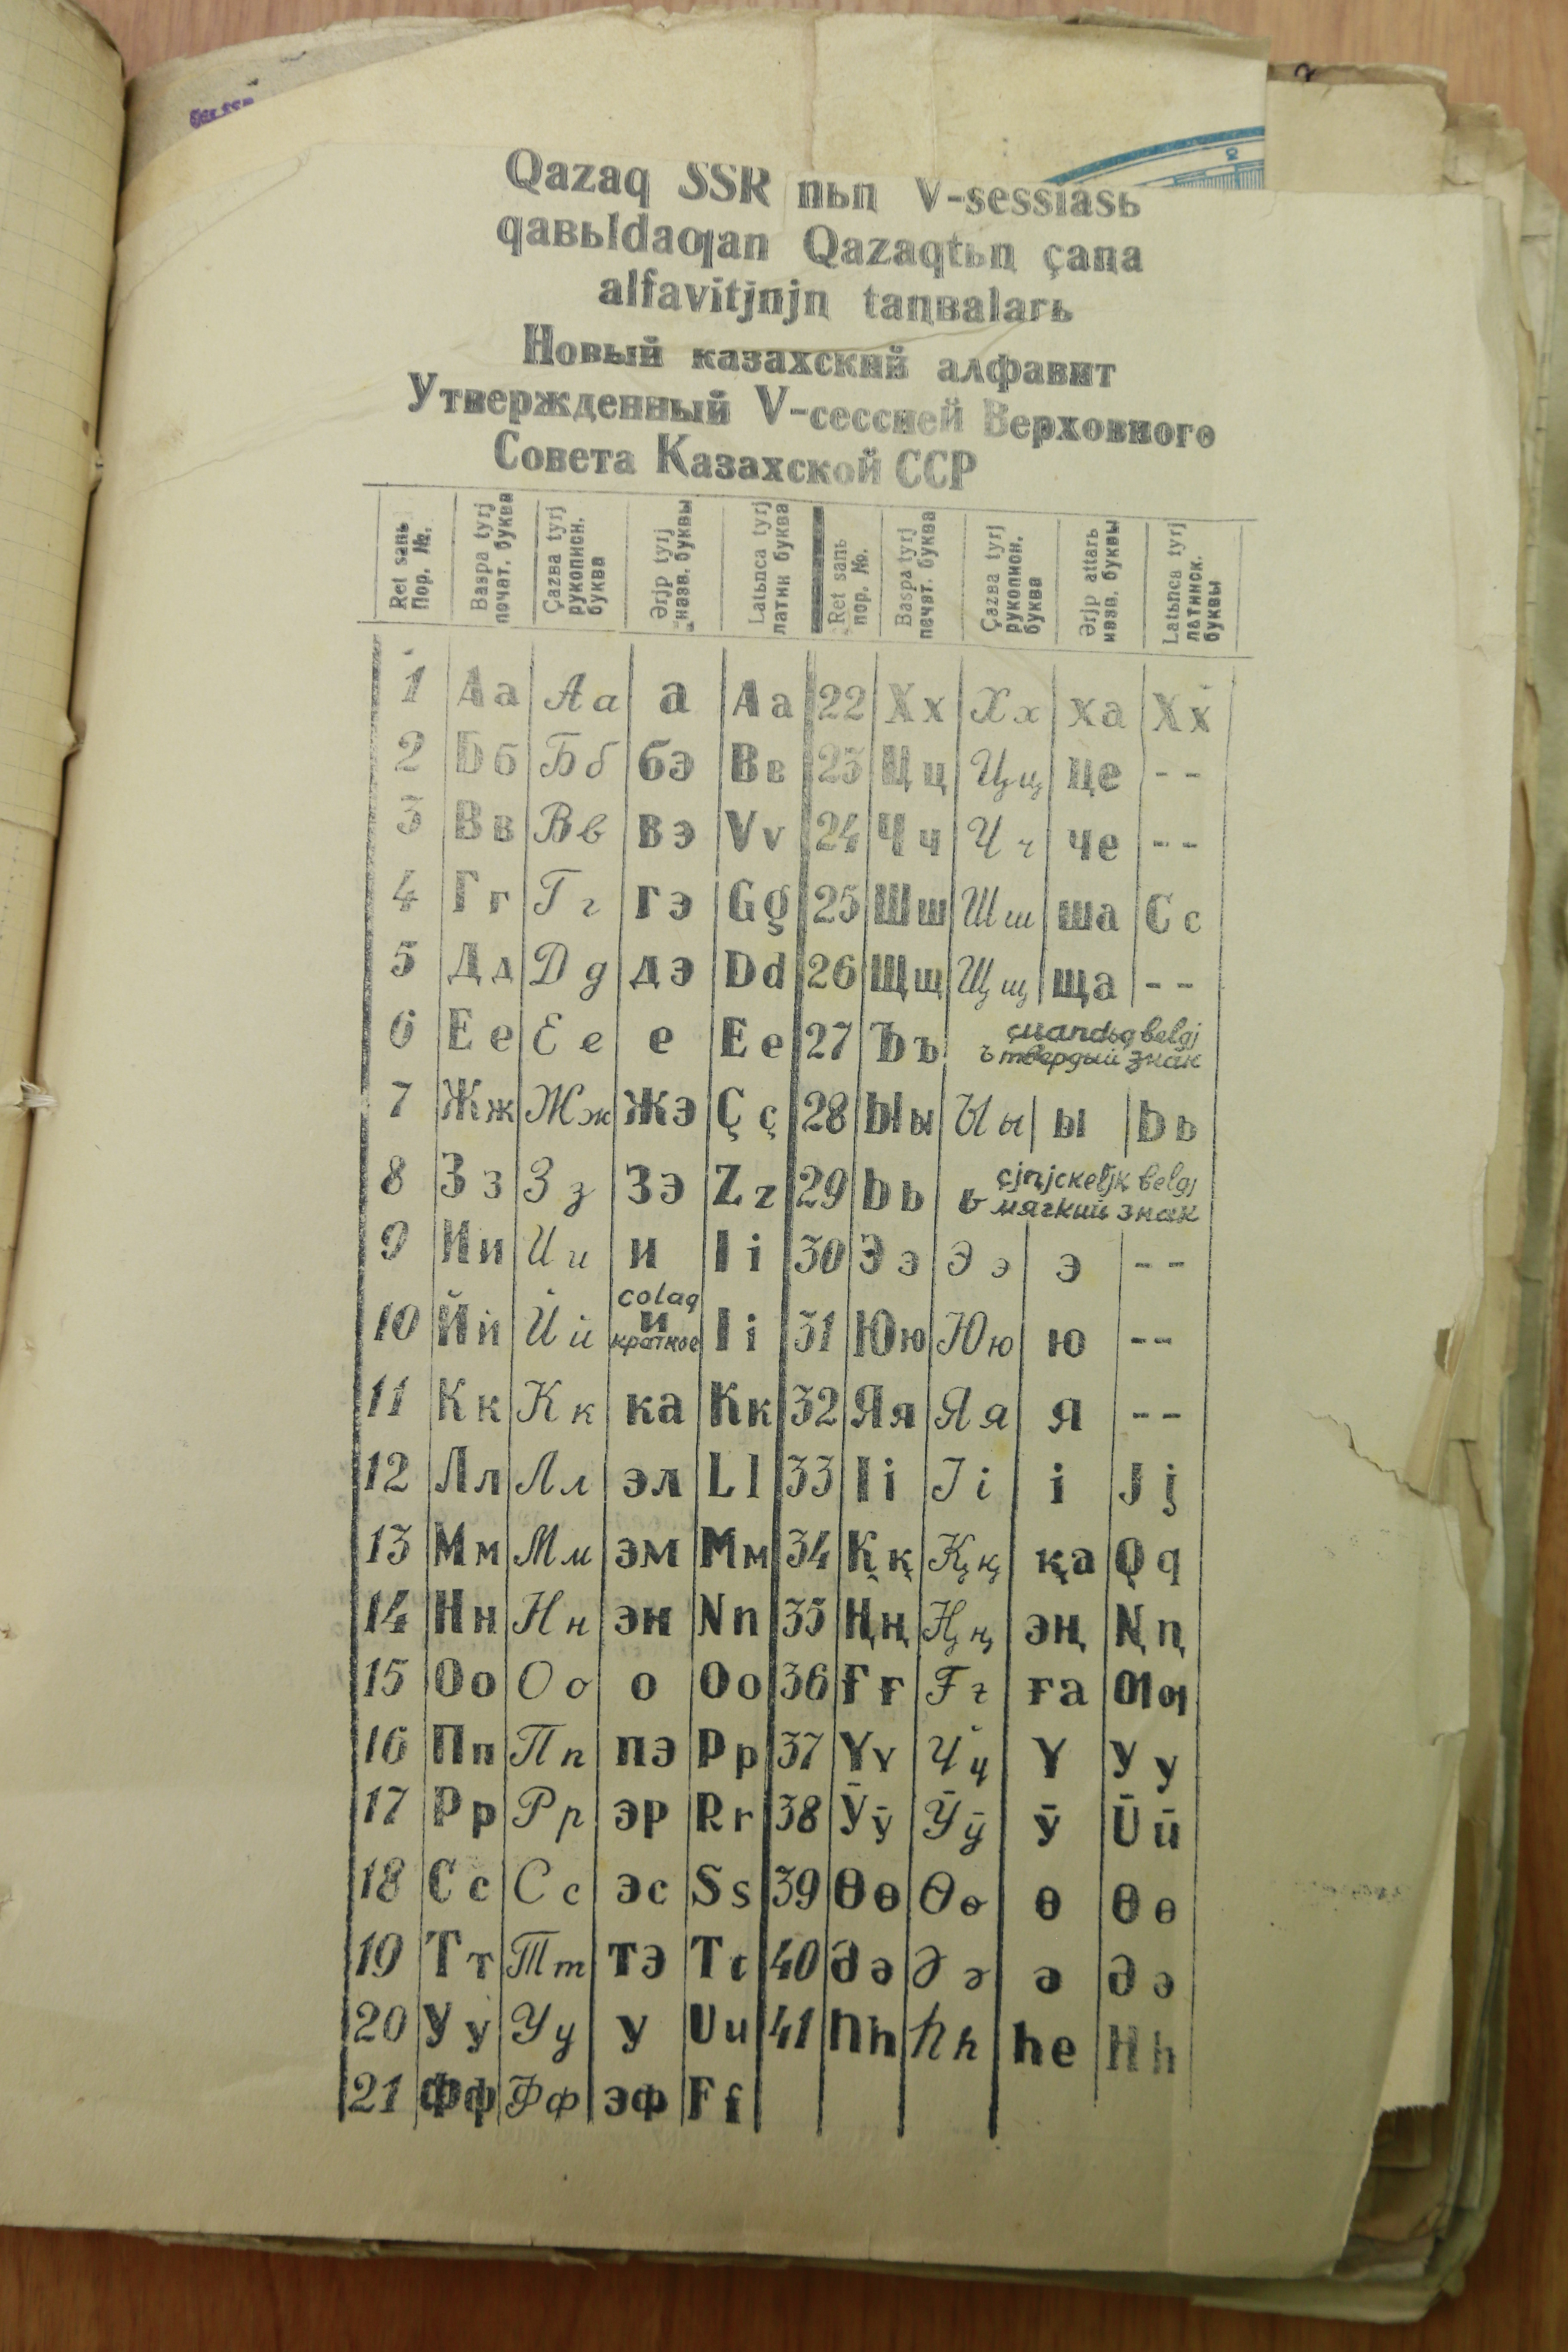 Qazaq SSR nьꞑ V-sessiasь
qaвьldaƣan Qazaqtьꞑ çaꞑa
alfavitjnjꞑ taꞑвalarь
Новый казахский алфавит
Утвержденный V-сессией Верховного
Совета Казахской ССР
Ret sanь Пор. №. | Baspa tyrj печат. буква | Çazвa tyrj рукописн. буква | Ərjp tyrj назв. буквы | Latьnca tyrj латин буква | Ret sanь пор. №. | Baspa tyrj печат. буква | Çazвa tyrj рукописн. буква | Ərjp attarь назв. буквы | Latьnca tyrj латинск. буквы
1 Аа Аа а Aa 22 Хх Хх ха Xx
2 Бб Бб бэ Bв 23 Цц Цц це --
3 Вв Вв вэ Vv 24 Чч Чч че --
4 Гг Гг гэ Gg 25 Шш Шш ша Cc
5 Дд Дд дэ Dd 26 Щщ Щщ ща --
6 Ее Ее е Ee 27 Ъъ çuandьq belgj ъ твердый знак
7 Жж Жж жэ Çç 28 Ыы Ыы ы Ьь
8 Зз Зз зэ Zz 29 Ьь çjꞑjckeljk belgj ь мягкий знак
9 Ии Ии и Ii 30 Ээ Ээ э --
10 Йй Йй colaq и краткое Ii 31 Юю Юю ю --
11 Кк Кк ка Kk 32 Яя Яя я --
12 Лл Лл эл Ll 33 Іі Іі і Jj
13 Мм Мм эм Mм 34 Ққ Ққ қа Qq
14 Нн Нн эн Nn 35 Ңң Ңң эң Ꞑꞑ
15 Оо Оо о Oo 36 Ғғ Ғғ ға Ƣƣ
16 Пп Пп пэ Pp 37 Үү Үү ү Yy
17 Рр Рр эр Rr 38 Ӯӯ Ӯӯ ӯ Ūū
18 Сс Сс эс Ss 39 Өө Өө ө Ɵɵ
19 Тт Тт тэ Tt 40 Әә Әә ә Əə
20 Уу Уу у Uu 41 Һһ Һһ һе Hh
21 Фф Фф эф Ff